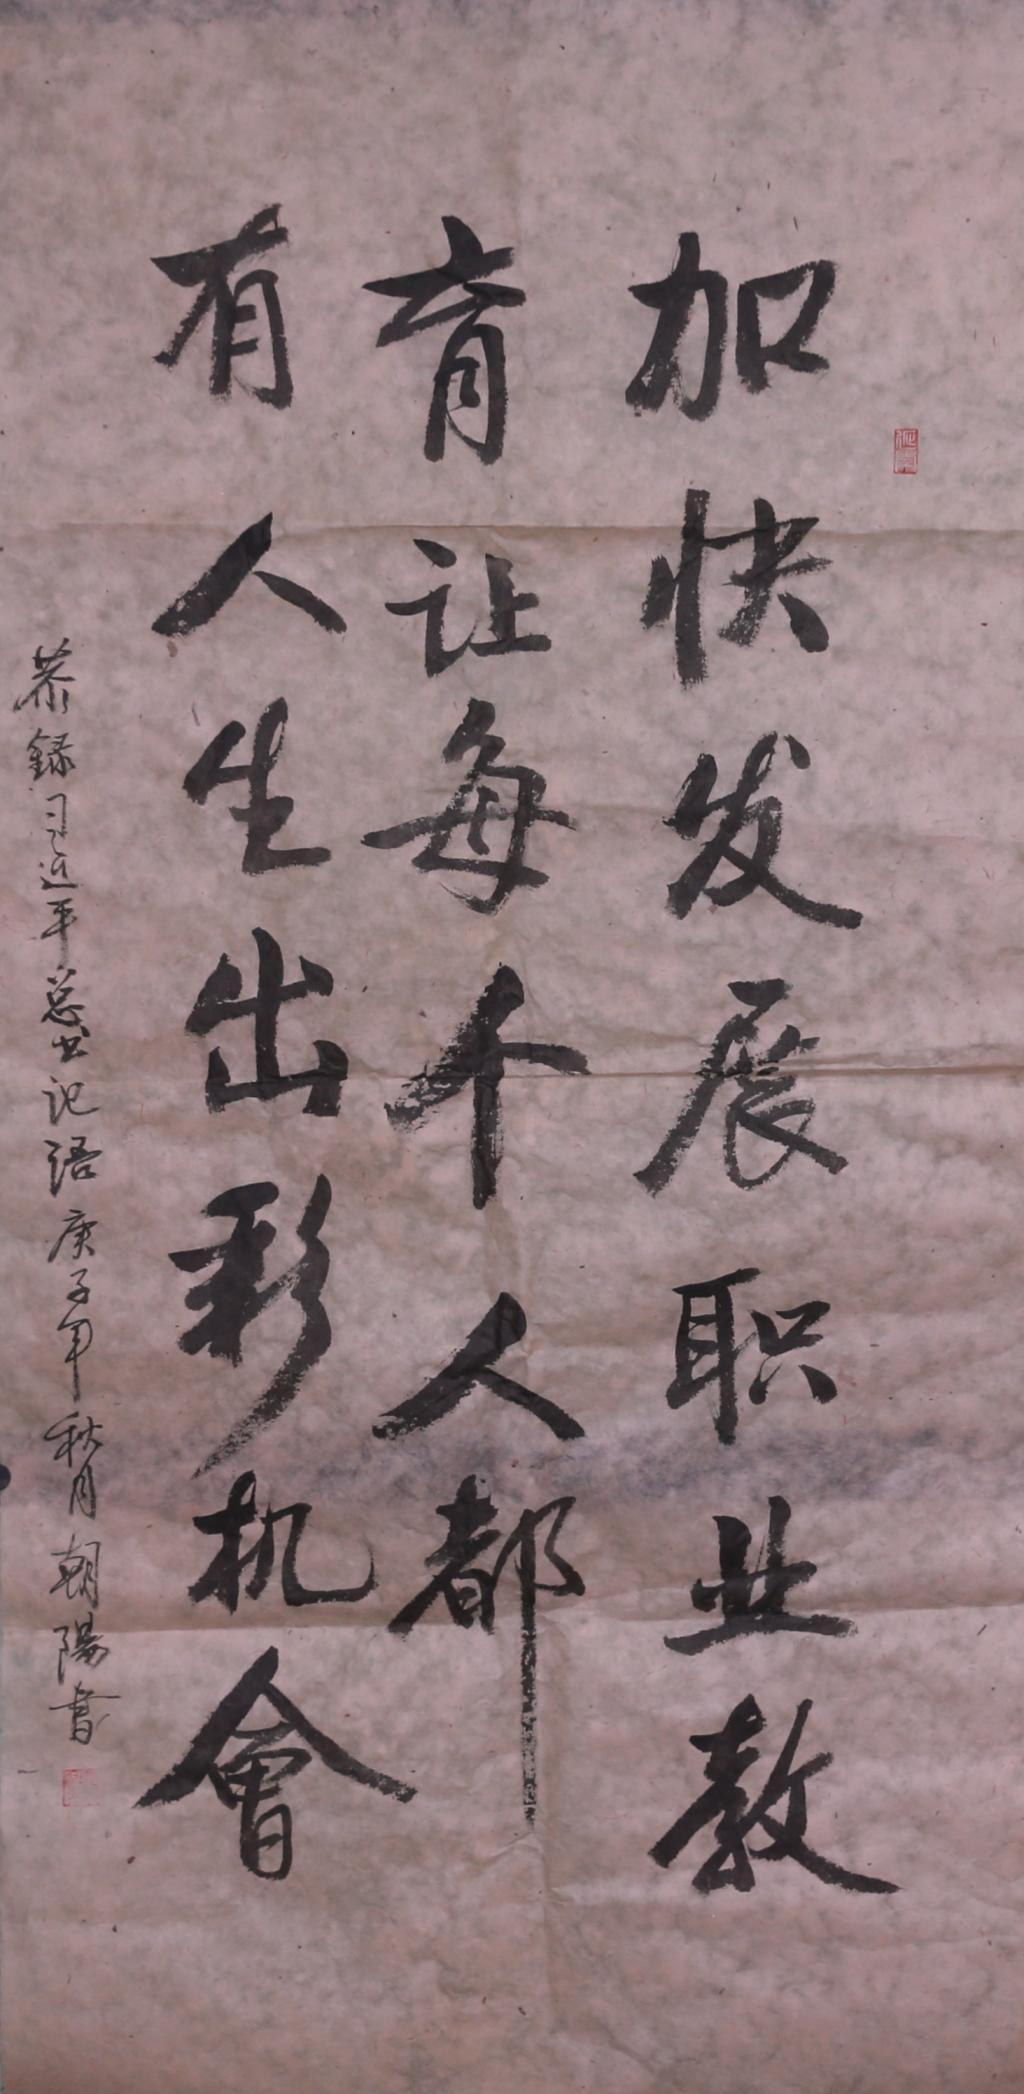 加快发展职业教
育让每个人都
有人生出彩机會
恭錄习近平总书记语庚子年秋月朝陽书